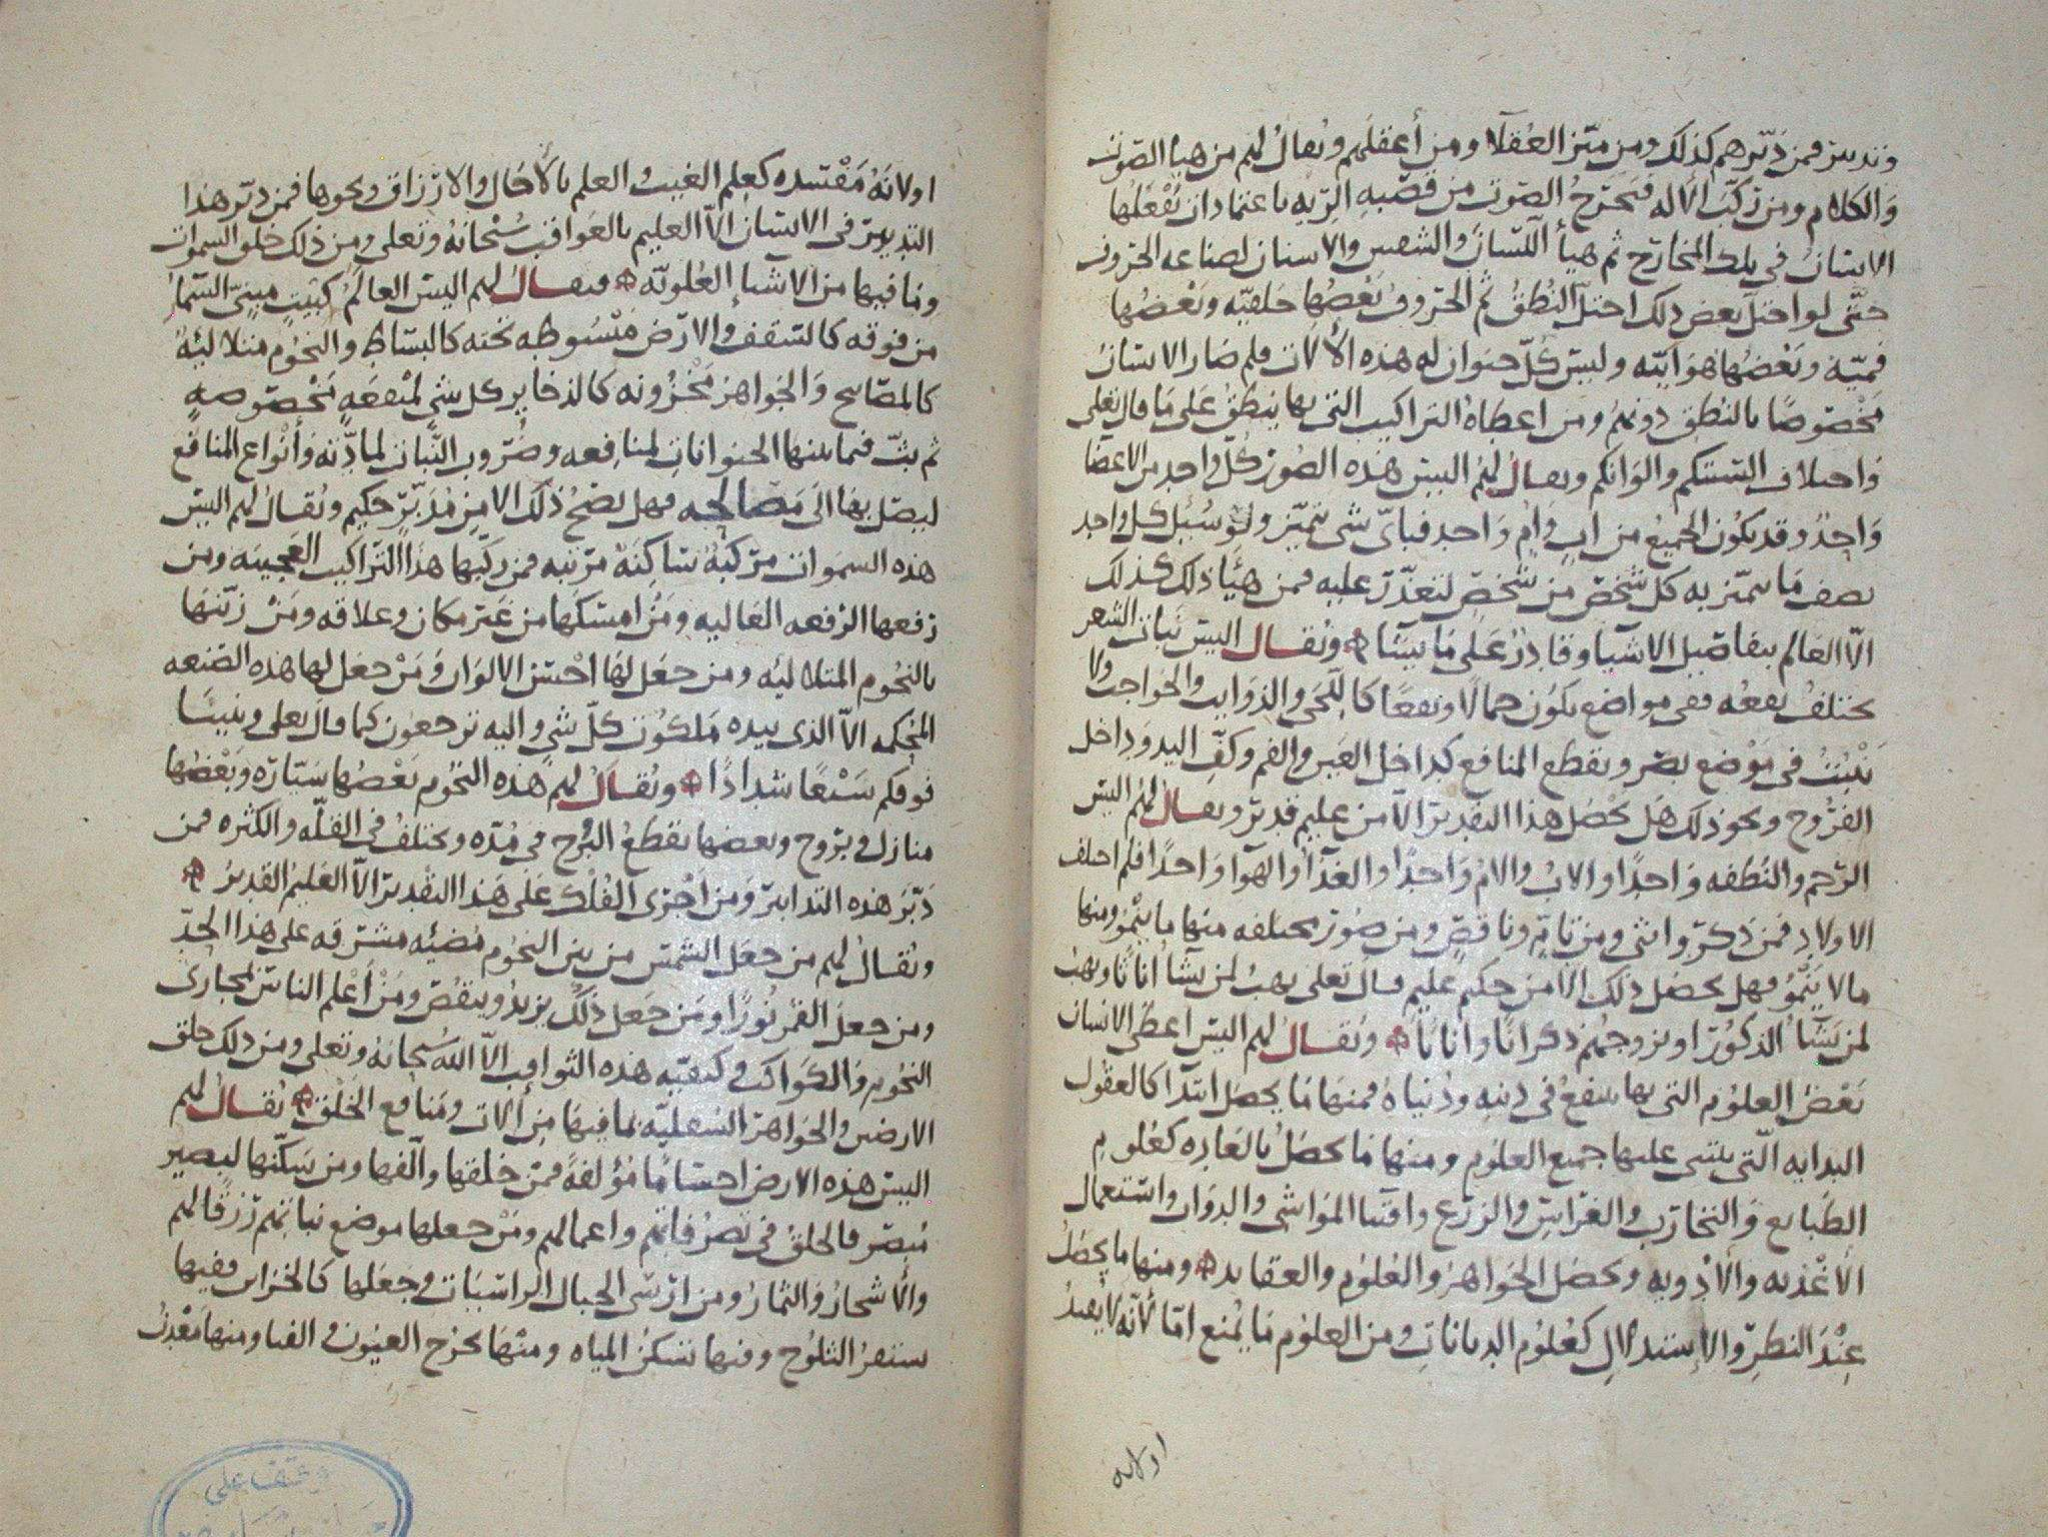 وتدبير فمن دبّرهم كذلك ومن ميّز العقلآ ومن أعقلهم ويقال لهم من هيا الصوت
والكلام ومن ركّب الاله فتخرج الصوت من قصبه الريه باعتمادات يفعلها
الانسان في تلك المخارج ثم هيأ اللسان والشفتين والاسنان لصناعه الحروف
حتّى لو اختل بعض ذلك اختل النطق ثم الحروف بعضها حلقيّه وبعضها
فميّه وبعضها هوايّه وليس كلّ حيوان له هذه الألات فلم صار الانسان
مخصوصًا بالنطق دونهم ومن اعطاه التراكيب التي بها ينطق على ما قال تعلى
واختلاف السنتكم والوانكم ويقال لهم اليس هذه الصور كلّ واحد من الاعضا
واحدٌ وقد يكون الجميع من اب وام واحد فبايّ شي يتميّز ولو سُئِل كل واحد
يصف ما يتميّز به كل شخص من شخصٍ لتعذّر عليه فمن هيّأ ذلك كذلك
الّا العالم بتفاصيل الاشيا وقادرٌ على ما يشا ويقال اليس نبات الشعر
يختلف نفعه ففي مواضع يكون جمالًا ونفعًا كاللّحى والذوايب والحواجب ولا
ينبت في موضع يضر ويقطع المنافع كداخل العين والفم وكفّ اليد وداخل
الفروج ونحو ذلك هل يحصل هذا التقدير الّا من عليم قدير ويقال لهم اليس
الرّحم والنطفه واحدًا والاب والام واحدًا والغذآ والهوا واحدًا فلم اختلف
الاولاد فمن ذكرٍ وانثى ومن تامٍّ وناقصٍ ومن صور مختلفه منها ما ينمُو ومنها
مالا ينمُو فهل يحصل ذلك الّا من حكيم عليم قال تعلى يهبُ لمن يشآ اناثًا ويهب
لمن يشآ الذكور او يزوجهم ذكرانًا واناثًا ويقال لهم اليس اعطي الانسان
بعض العلوم التي بها ينتفع في دينه ودُنياه فمنها ما يحصل ابتدآ كالعقول
البدايه الّتي يبتنى عليها جميع العلوم ومنها ما يحصل بالعاده كعُلوم
الطبايع والتجارب والغرايس والزرع واقتنا المواشي والدواب واستعمال
الأغذيه والأدويه وتحصل الجواهر والعلوم والعقايد ومنها ما يحصل
عند النظر والإستدلال كعُلوم الديانات ومن العلوم ما يُمنع امّا لأنه لا يفيد
اولانه
اولانه مفسده كعلم الغيب والعلم بالأجال والارزاق ونحوها فمن دبّر هذا
التدبير في الانسان الّا العليم بالعواقب سُبحانه وتعلى ومن ذلك خلق السموات
وما فيها من الاشيإ العُلويّه ويقال لهم اليس العالم كبيتٍ مبنيّ السمآ
من فوقه كالسقف والارض مبسُوطه تحته كالبساط والنجوم متلاليه
كالمصابيح والجواهر مخزونه كالذخاير كل شي لمنفعه مخصوصهٍ
ثم بثّ فيما بينها الحيوانات لمنافعه وضروب النّبات لمادّته وأنواع المنافع
ليصل بها الى مصالحه فهل يصحُ ذلك الا من مُدبّر حكيم ويقال لهم اليس
هذه السموات مركبهٌ ساكنهٌ مرتبه فمن ركّبها هذا التراكيب العجيبه ومن
رفعها الرّفعه العاليه ومن امسكها من غير مكان وعلاقه ومن زيّنها
بالنجوم المتلاليه ومن جعل لها احسن الالوان ومن جعل لها هذه الصنعه
المحكمه الّا الذي بيده ملكُوت كلّ شي واليه ترجعون كما قال تعلى وبنينا
فوقكم سبعًا شدادًا ويقال لهم هذه النجوم بعضها سيّاره وبعضها
منازل وبروج وبعضها يقطع البُروج في مُدّه ويختلف في القلّه والكثره فمن
دبّر هذه التدابير ومن اجرى الفُلك على هذا التقدير الّا العليم القدير
ويقال لهم من جعل الشمس من بين النجوم مضيئه مشرقه على هذا الحدّ
ومن جعل القمر نُورًا ومن جعل ذلك يزيد وينقُص ومن أعلم الناس لمجاري
النجوم والكواكب وكيفيّه هذه الثواقب الّا الله سبحانه وتعلى ومن ذلك خلق
الارضين والجواهر السُفليّه بما فيها من ألات ومنافع الخلق يقال لهم
اليس هذه الارض اجسامًا مؤلفه فمن خلقها وألّفها ومن سكّنها ليصير
مُبصرًا الخلق في تصرفاتهم واعمالهم ومن جعلها موضع نباتهم رزقًا لهم
والأشجار والثمار ومن ارسى الجبال الراسيات وجعلها كالخزاين ففيها
تستقر الثلوج وفيها تسكن المياه ومنها تخرج العيون والقنا ومنها معدن
وقف على